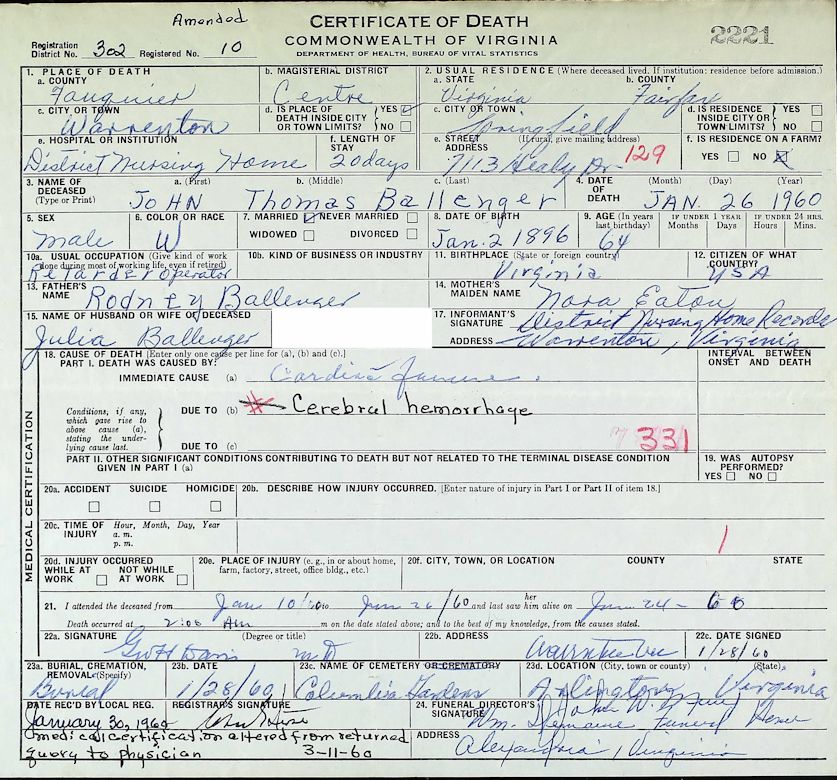 Amended
CERTIFICATE OF DEATH
COMMONWEALTH OF VIRGINIA
DEPARTMENT OF HEALTH, BUREAU OF VITAL STATISTICS
2221
Registration District No. 302 Registered No. 10
1. PLACE OF DEATH
a. COUNTY
Fauquier
b. MAGISTERIAL DISTRICT
Centre
2. USUAL RESIDENCE (Where deceased lived. If institution: residence before admission.)
a. STATE
Virginia
b. COUNTY
Fairfax
c. CITY OR TOWN
Warrenton
d. IS PLACE OF DEATH INSIDE CITY OR TOWN LIMITS? YES NO
c. CITY OR TOWN
Springfield
d. IS RESIDENCE INSIDE CITY OR TOWN LIMITS? YES NO
e. HOSPITAL OR INSTITUTION
District Nursing Home
f. LENGTH OF STAY
20 days
e. STREET ADDRESS (If rural, give mailing address)
7113 Healy Dr 129
f. IS RESIDENCE ON A FARM?
YES NO X
3. NAME OF DECEASED (Type or Print)
a. (First) b. (Middle) c. (Last)
JOHN Thomas Ballenger
4. DATE OF DEATH (Month) (Day) (Year)
JAN. 26 1960
5. SEX
male
6. COLOR OR RACE
W
7. MARRIED NEVER MARRIED
WIDOWED DIVORCED
8. DATE OF BIRTH
Jan. 2 1896
9. AGE (In years last birthday)
64
IF UNDER 1 YEAR Months Days
IF UNDER 24 HRS. Hours Mins.
10a. USUAL OCCUPATION (Give kind of work done during most of working life, even if retired)
Retarder Operator
10b. KIND OF BUSINESS OR INDUSTRY
11. BIRTHPLACE (State or foreign country)
Virginia
12. CITIZEN OF WHAT COUNTRY?
USA
13. FATHER'S NAME Rodney Ballenger
14. MOTHER'S MAIDEN NAME Nora Eaton
15. NAME OF HUSBAND OR WIFE OF DECEASED
Julia Ballenger
17. INFORMANT'S SIGNATURE District Nursing Home Records
ADDRESS Warrenton, Virginia
MEDICAL CERTIFICATION
18. CAUSE OF DEATH [Enter only one cause per line for (a), (b) and (c).]
PART I. DEATH WAS CAUSED BY:
INTERVAL BETWEEN ONSET AND DEATH
IMMEDIATE CAUSE (a)
Conditions, if any, which gave rise to above cause (a), stating the underlying cause last.
DUE TO (b) Cerebral hemorrhage
DUE TO (c)
331
PART II. OTHER SIGNIFICANT CONDITIONS CONTRIBUTING TO DEATH BUT NOT RELATED TO THE TERMINAL DISEASE CONDITION GIVEN IN PART I (a)
19. WAS AUTOPSY PERFORMED?
YES NO
20a. ACCIDENT SUICIDE HOMICIDE
20b. DESCRIBE HOW INJURY OCCURRED. [Enter nature of injury in Part I or Part II of item 18.]
20c. TIME OF INJURY Hour, Month, Day, Year
a. m.
p. m.
1
20d. INJURY OCCURRED
WHILE AT WORK NOT WHILE AT WORK
20e. PLACE OF INJURY (e. g., in or about home, farm, factory, street, office bldg., etc.)
20f. CITY, TOWN, OR LOCATION COUNTY STATE
21. I attended the deceased from Jan 10/60 to Jan 26/60 and last saw her him alive on Jan 24 - 60
Death occurred at 2:00 AM m on the date stated above; and to the best of my knowledge, from the causes stated.
22a. SIGNATURE (Degree or title)
MD
22b. ADDRESS
22c. DATE SIGNED
1/28/60
23a. BURIAL, CREMATION, REMOVAL (Specify)
Burial
23b. DATE
1/28/60
23c. NAME OF CEMETERY OR CREMATORY
Columbia Gardens
23d. LOCATION (City, town or county) (State)
Arlington, Virginia
DATE REC'D BY LOCAL REG.
January 30, 1960
REGISTRAR'S SIGNATURE
24. FUNERAL DIRECTOR'S SIGNATURE
John W.
Wm. Demaine Funeral Home
ADDRESS Alexandria, Virginia
medical certification altered from returned
query to physician 3-11-60